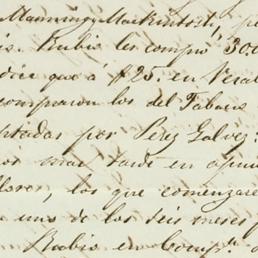 Manning Mackintosh, pe
is. Rubio les compro 300
dice que á $25. en Vera
compraron los del Tabaco
ptadas por Perez Galvez:
mas tarde en a
llores, los que comenzare
a uno de los seis meses p
Rubio en Comp.